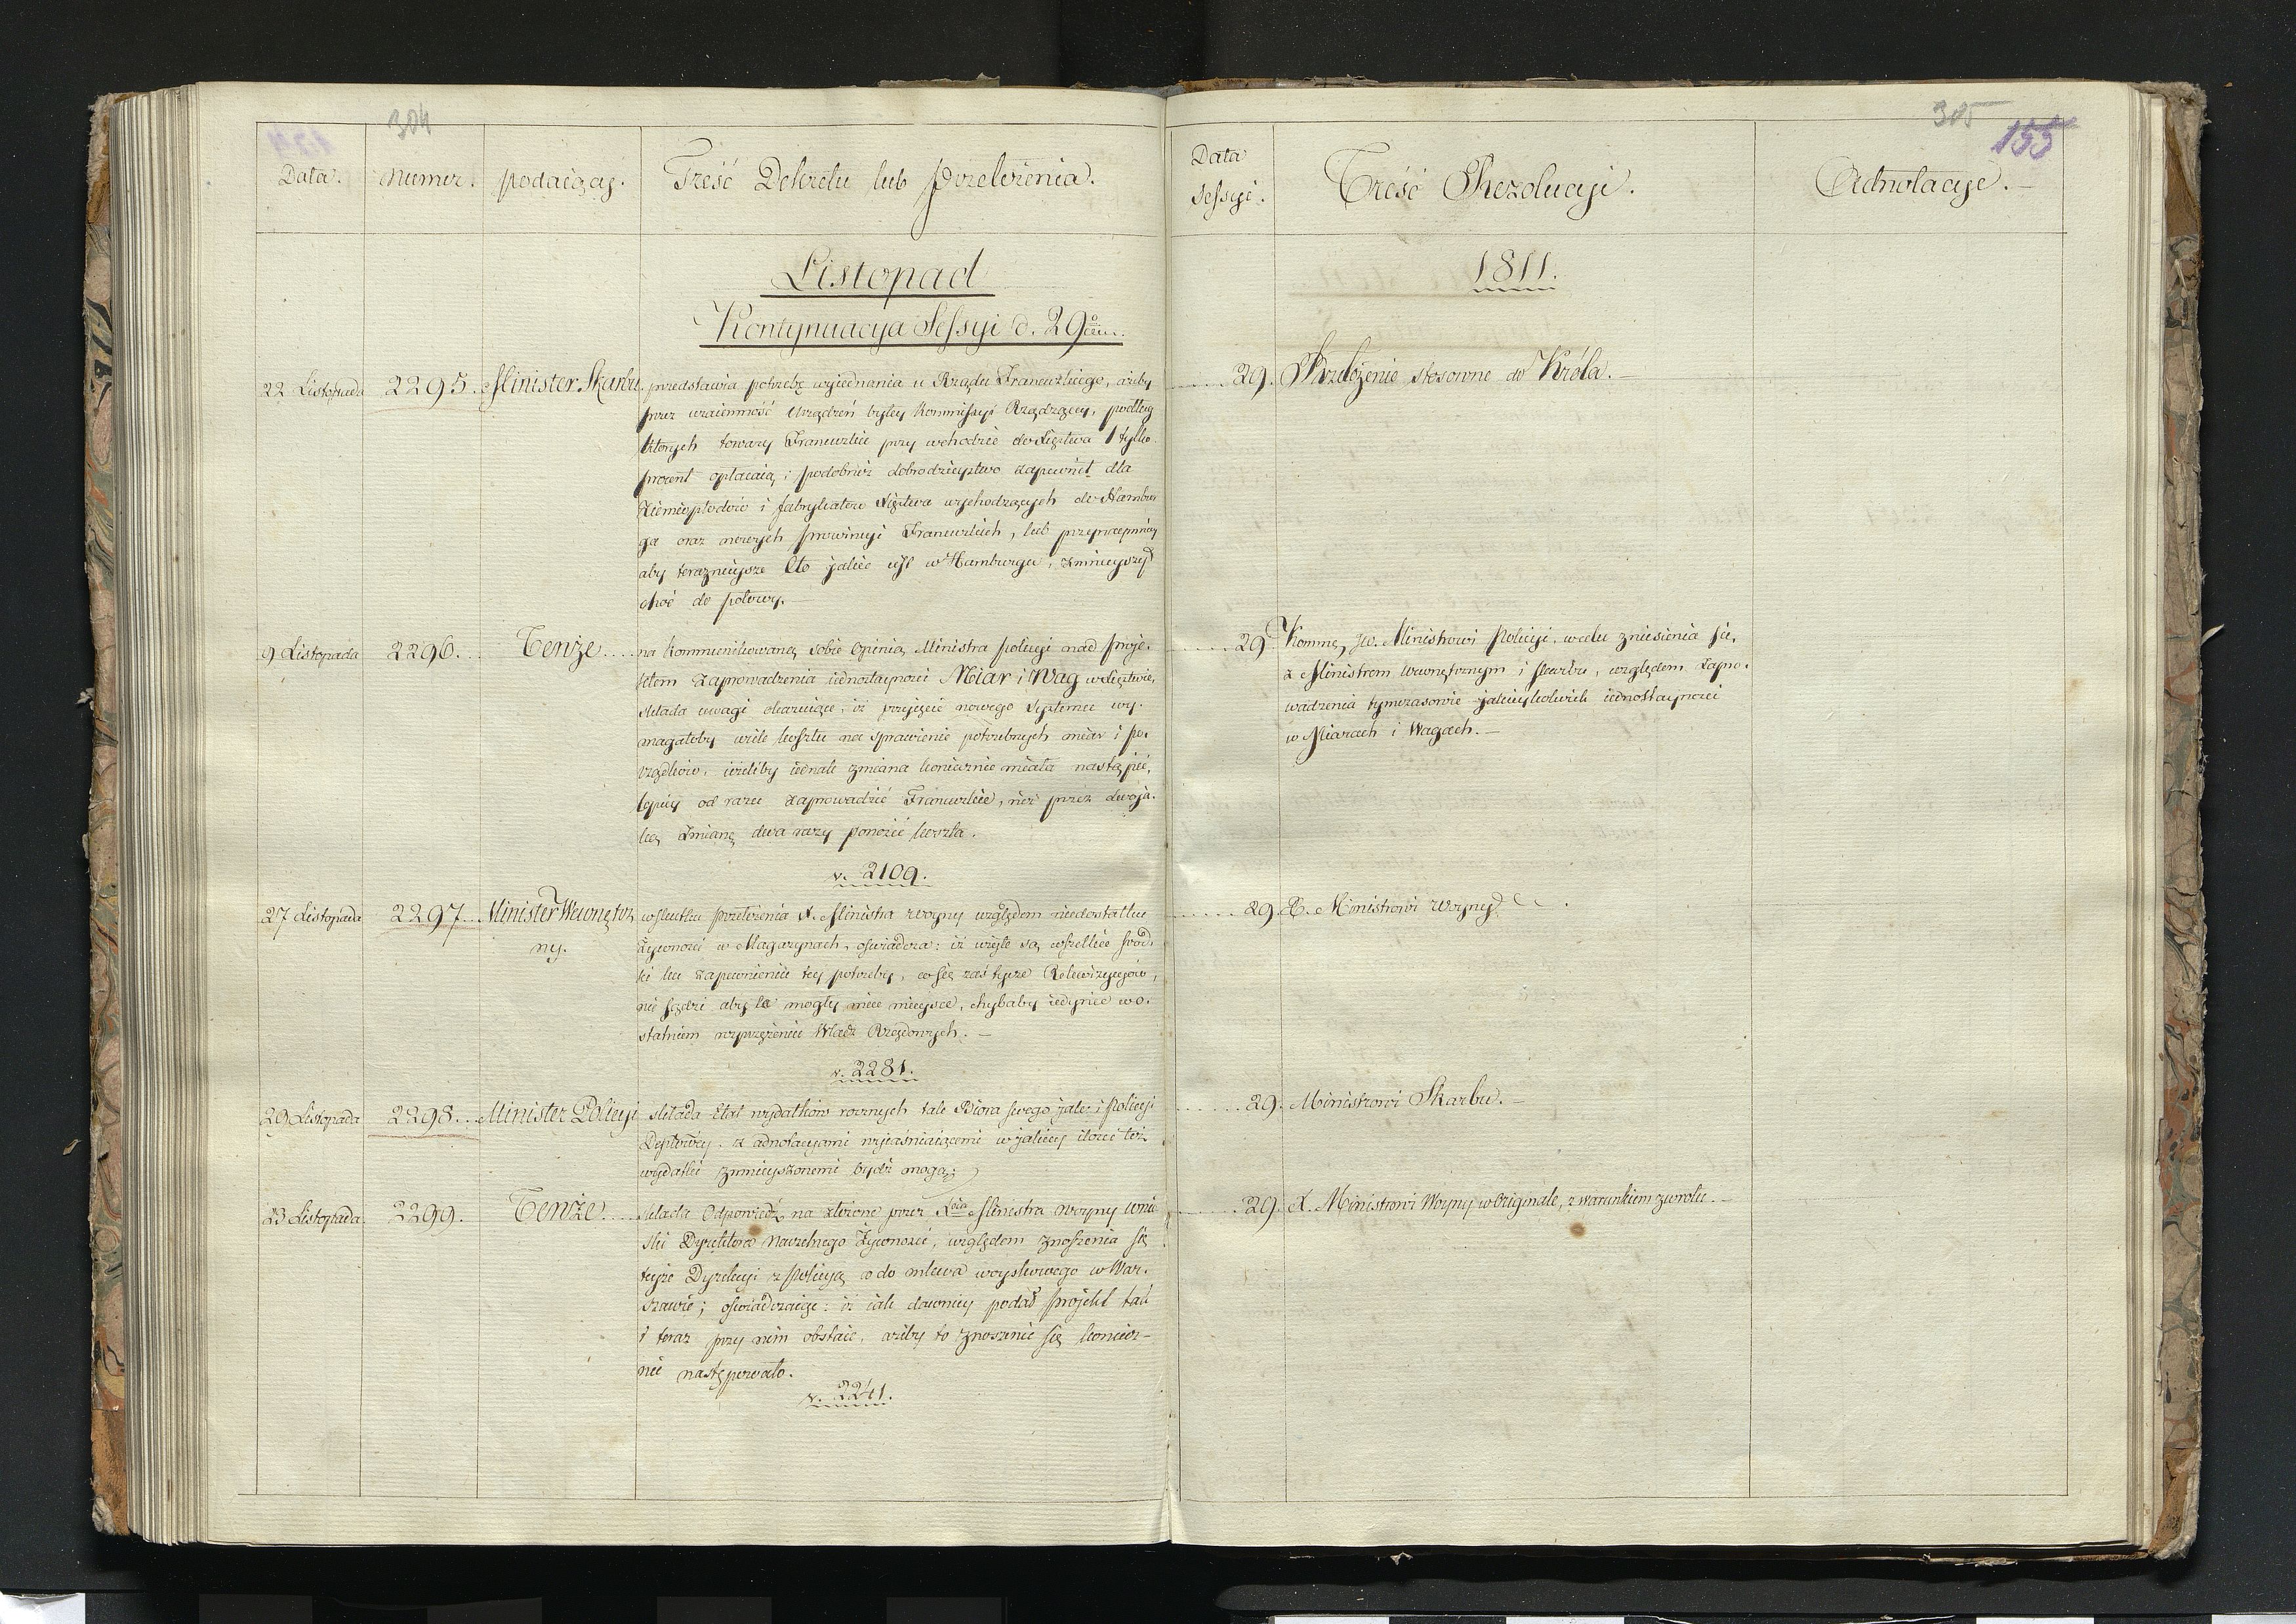 304
Data.
Numer.
podaiący.
Treść Dekretu lub Przełożenia.
Listopad
Kontynuacya Sessyi d. 29º
22 Listopada
2295.
Minister Skarbu
przedstawia potrzebę wyiednania u Rządu Francuzkiego, ażeby
przez wzaiemność Urządzeń byłey Kommissyi Rządzącey, podług
których towary Francuzkie przy wchodzie do Xięstwa 1 tylko
procent opłacaią; podobneż dobrodzieystwo zapewnił dla
Ziemiopłodów i fabrykatow Xięstwa wychodzących do Hambur
ga oraz nowych prowincyi Francuzkich, lub przynaymniey
aby teraznieysze Cło jakie iest w Hamburgu, zmnieyszył
choć do połowy.
9 Listopada
2296.
Tenże
na kommunikowaną sobie Opinią Ministra Policyi nad proje-
ktem zaprowadzenia iednostayności Miar i Wag w Xięstwie,
składa uwagi okazuiące, iż przyięcie nowego Systemu wy-
magałoby wiele kosztu na sprawienie potrzebnych miar i po-
rządków, ieżeliby iednak zmiana koniecznie miała nastąpić,
lepiey od razu zaprowadzić Francuzkie, niż przez dwoja-
ką zmianę dwa razy ponosić koszta.
v. 2109.
27 Listopada
2297.
Minister Wewnętrz
ny.
w skutku przełożenia X. Ministra Woyny względem niedostatku
Żywności w Magazynach, oświadcza: iż wzięte są wszelkie środ-
ki ku zapewnieniu tey potrzeby, co się zaś tycze Rekwizycyów,
nie sądzi aby te mogły mieć mieysce, chybaby iedynie w o-
statniem wyprężeniu Władz Rządowych. —
v. 2281.
29 Listopada
2298.
Minister Policyi
składa Etat wydatków rocznych tak Biora swego jako i Policyi
Deptowéy, z adnotacyami wyiaśniaiącemi w jakiey ilości też
wydatki zmnieyszonemi bydź mogą;
23 Listopada
2299.
Tenże
składa Odpowiedź na złożone przez Xcia Ministra Woyny wnio
ski Dyrektora Naczelnego Żywności, względem znoszenia się
teyże Dyrekcyi z Policyą co do mlewa woyskowego w War-
szawie; oświadczaiąc: iż iak dawniey podał projekt tak
i teraz przy nim obstaie, ażeby to znoszenie się koniecz-
nie następowało.
v. 2241.
305
155
Data
Sessyi.
Treść Rezolucyi.
Adnotacye. —
1811.
29. Przełożenie stosowne do Króla. —
29 Kommę Jw. Ministrowi Policyi, w celu zniesienia się,
z Ministrem Wewnętrznym i Skarbu, względem zapro-
wadzenia tymczasowie jakieykolwiek iednostayności
w Miarach i Wagach. —
29. X. Ministrowi Woyny
29. Ministrowi Skarbu. —
29. X. Ministrowi Woyny w Originale, z warunkiem zwrotu. —